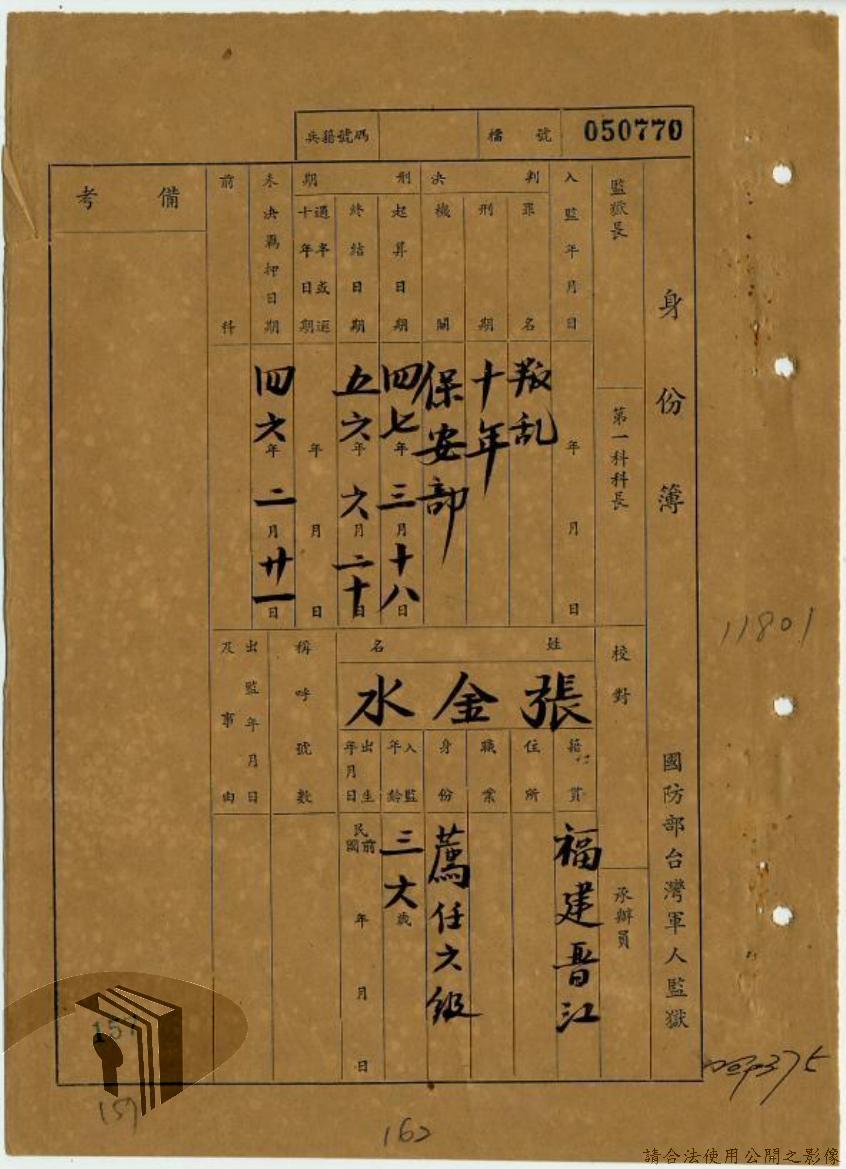 兵籍號碼 檔號 050770
身份簿 國防部台灣軍人監獄
監獄長
第一科科長
校對
承辦員
入監年月日 年 月 日
判決 罪名 叛乱
刑期 十年
機關 保安部
刑期 起算日期 四七年三月十八日
終結日期 五六年六月二十日
十年日期 年 月 日
未決羈押日期 四六年二月廿一日
前科
備考
姓名 張金水
籍貫 福建晋江
住所
職業
身份 薦任六級
入監年齡 三六歲
出生年月日 民國前 年 月 日
稱呼號數
出監年月日及事由
11801
157
157
162
請合法使用公開之影像